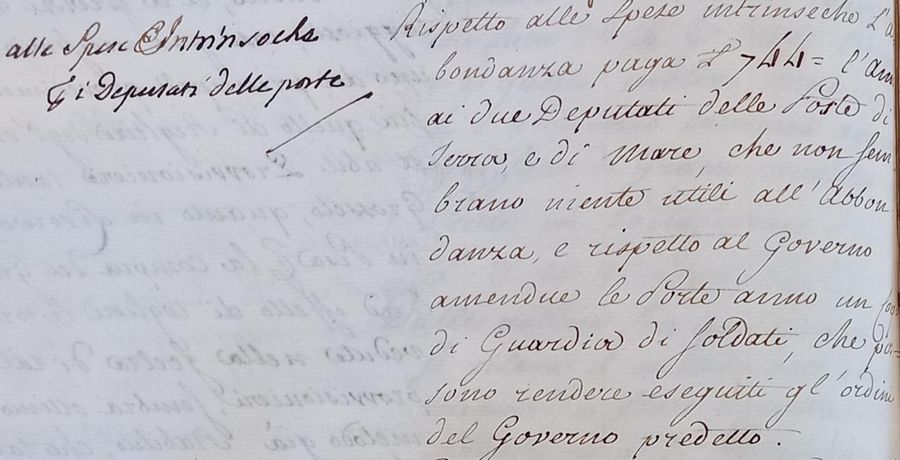 alle Spese Intrinseche
i Deputati delle porte
Rispetto alle Spese intrinseche L'a
bondanza paga £ 744= l'an
ai due Deputati delle Porte di
Terra, e di Mare, che non sem
brano niente utili all'Abbon
danza, e rispetto al Governo
amendue le Porte anno un
di Guardia di Soldati, che pos=
sono rendere eseguiti gl'ordini
del Governo predetto.